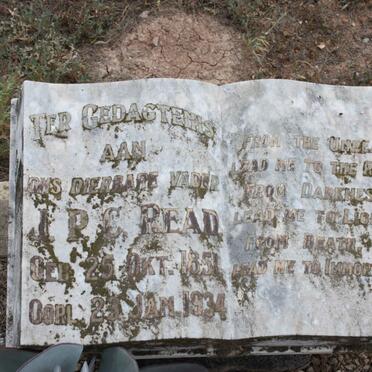 TER GEDAGTENIS
AAN
ONS DIERBARE VADER
J. P. C. READ
GEB. 25 OKT. 1851
OORL. 24 JAN. 1934
FROM THE
LEAD ME TO THE
FROM DARKNESS
LEAD ME TO
FROM DEATH
LEAD ME TO